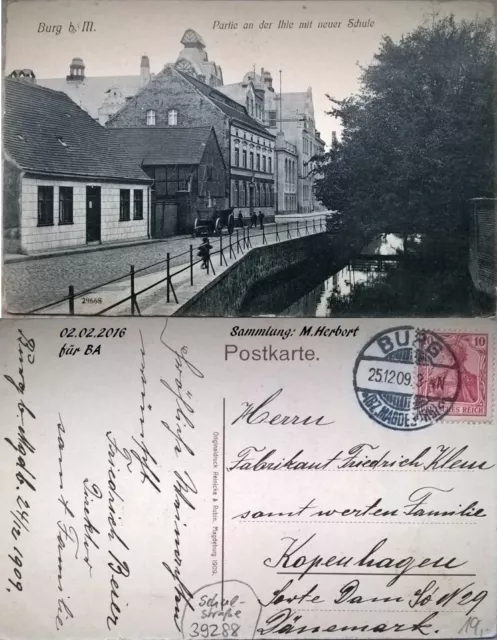 Burg b. M.
Partie an der Ihle mit neuer Schule
29668
02.02.2016
für BA
Sammlung: M. Herbert
Postkarte.
BURG
25.12.09. 3-4N
(BZ. MAGDEBURG)
10
DEUTSCHES REICH
Herrn
Fabrikant Friedrich Klem
samt werten Familie
Kopenhagen
Sorte Dam Sö N 29
Dänemark.
Originaldruck Reinicke & Rubin, Magdeburg 1909.
Fröhliche Weinachten
wünscht
Friedrich Beier
Direktor
samt Familie
Burg b. Magdb. 24/12 1909.
Schul-
straße
39288
19,-